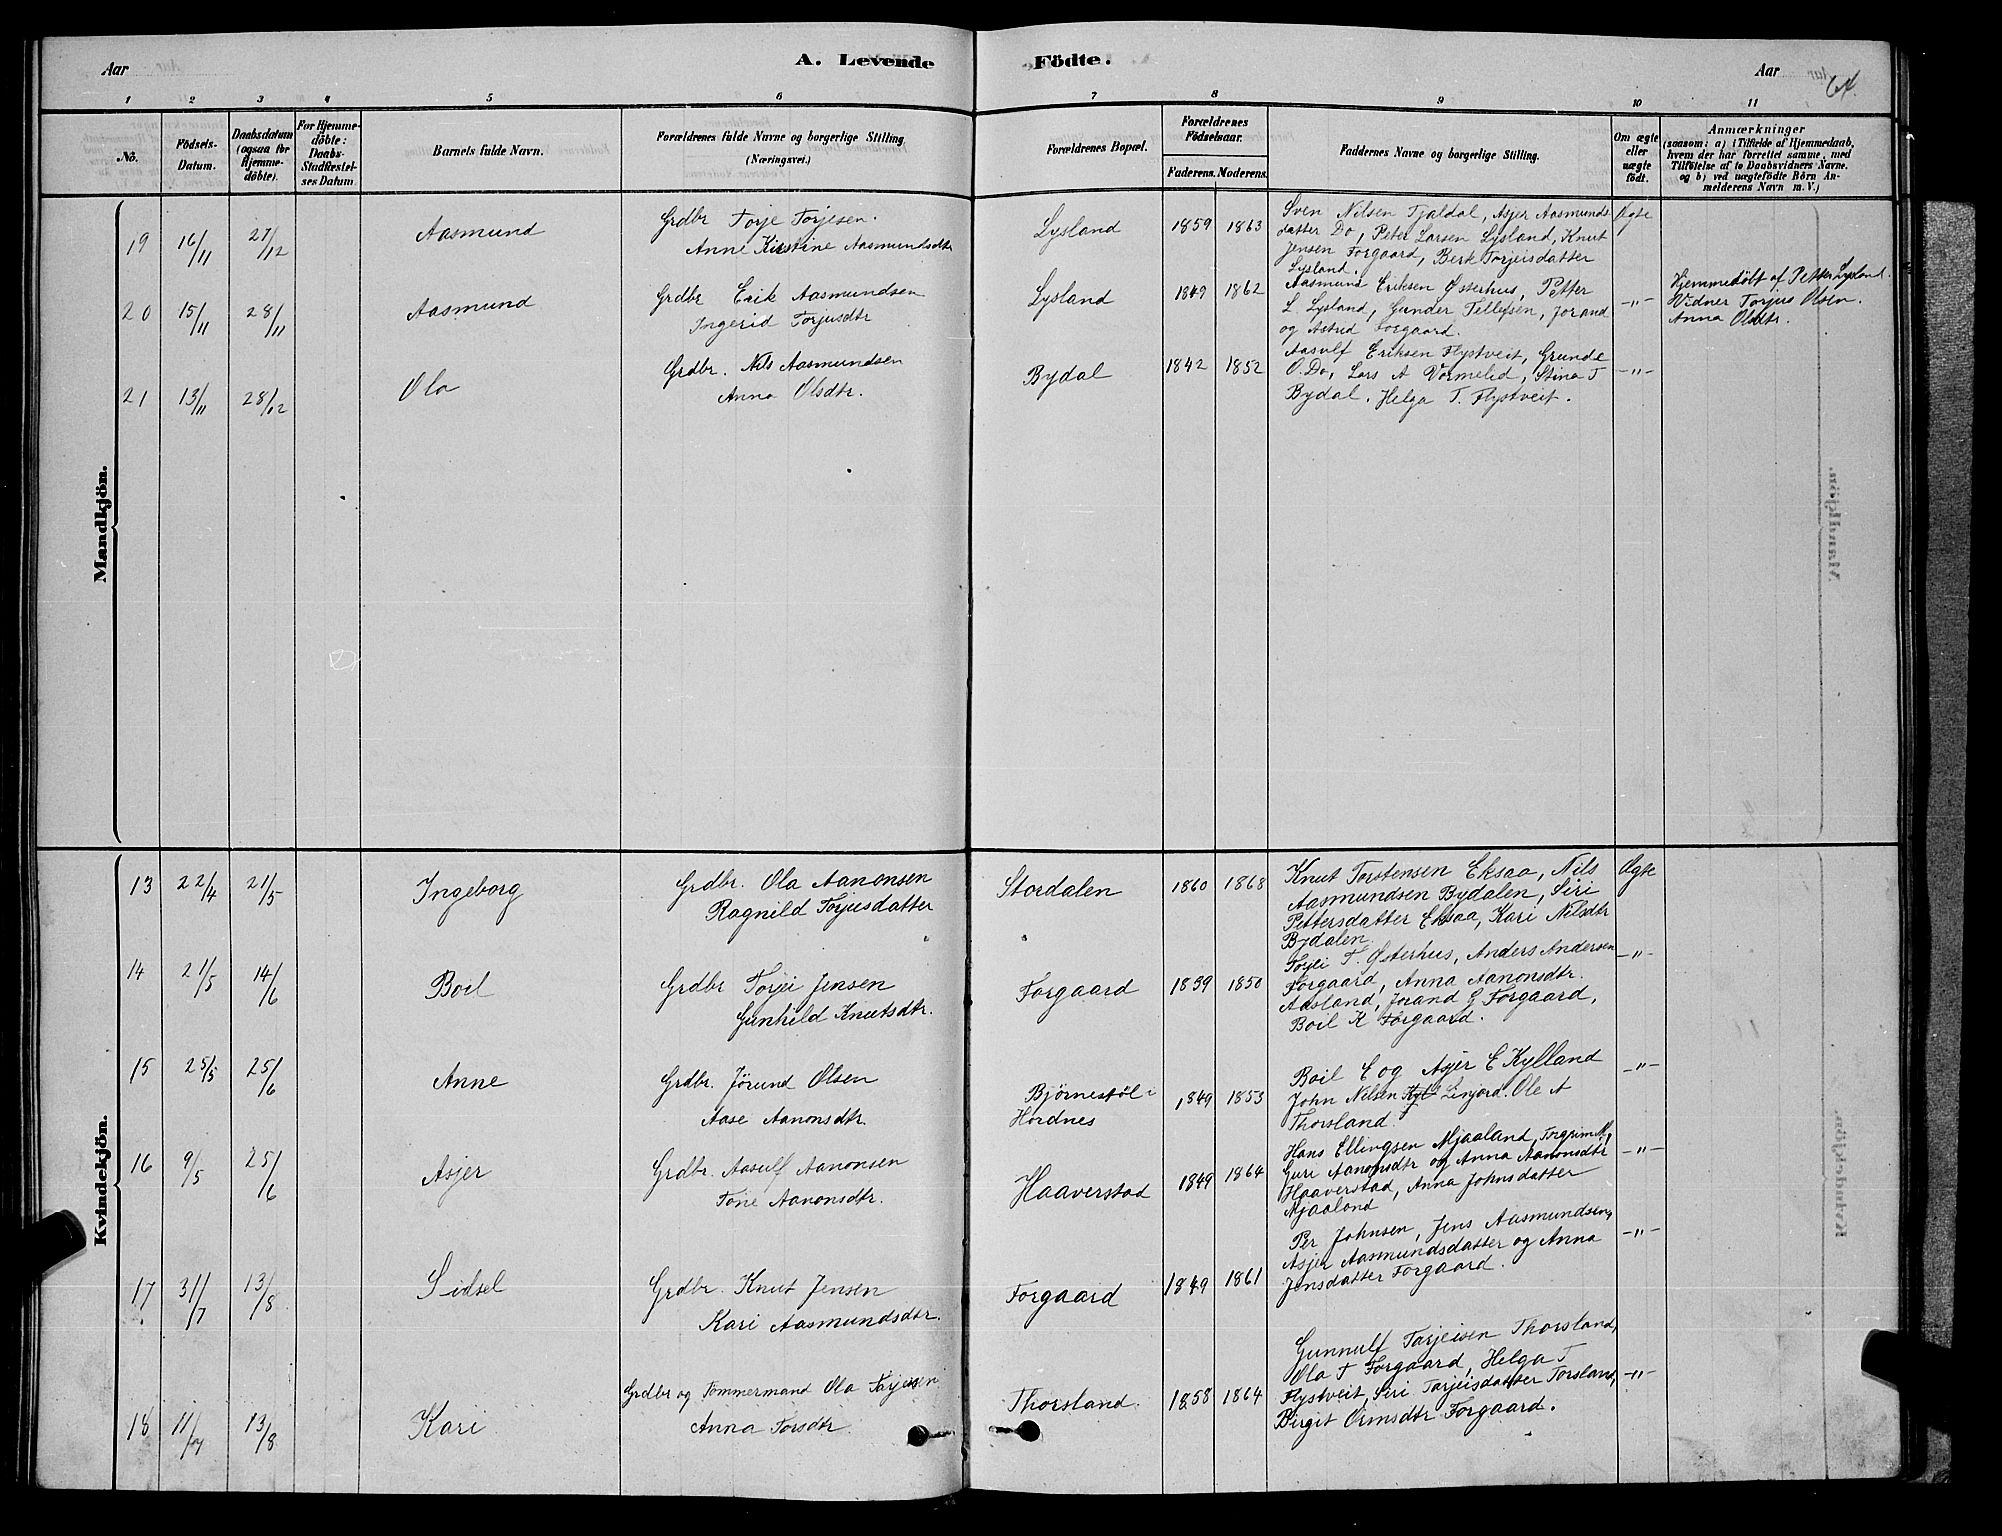 Aar
A. Levende
Födte.
Aar
64.
1 2 3 4 5 6 7 8 9 10 11
No.
Födsels-
Datum.
Daabsdatum
(ogsaa for
Hjemme-
döbte).
For Hjemme-
döbte:
Daabs-
Stadfæstel-
ses Datum.
Barnets fulde Navn.
Forældrenes fulde Navne og borgerlige Stilling
(Næringsvei.)
Forældrenes Bopæl.
Forældrenes
Födselsaar.
Faderens. Moderens.
Faddernes Navne og borgerlige Stilling.
Om ægte
eller
uægte
födt.
Anmærkninger
(saasom: a) i Tilfælde af Hjemmedaab,
hvem der har forrettet samme, med
Tilföielse af to Daabsvidners Navne.
og b) ved uægtefödte Börn An-
melderens Navn m. V.)
Mandkjön.
19 16/11 27/12 Aasmund
Grdbr Torje Torjesen.
Anne Kirstine Aasmundsdtr
Lysland 1859 1863
Sven Nilsen Fjaldal, Asjer Aasmunds-
datter Do, Peter Larsen Lysland, Knut
Jensen Forgaard, Berte Torjeisdatter
Lysland.
Ægte
20 15/11 28/11 Aasmund
Grdbr Erik Aasmundsen
Ingerid Torjusdtr
Lysland 1849 1862
Aasmund Eriksen Østerhus, Petter
L Lysland, Gunder Tellefsen, Jorand
og Astrid Forgaard.
-"-
Hjemmedöbt af Petter Lysland.
Vidner Torjus Olsen.
Anna Olsdtr.
21 13/11 28/12 Ola
Grdbr. Nils Aasmundsen
Anna Olsdtr.
Bydal 1842 1852
Aasulf Eriksen Flystveit, Grunde
O. Do, Lars A Vormelid, Stina T
Bydal, Helga T. Flystveit.
-"-
Kvindekjön.
13 22/4 21/5 Ingeborg
Grdbr. Ola Aanonsen
Ragnild Torjusdatter
Stordalen 1860 1868
Knut Torstensen Eksaa, Nils
Aasmundsen Bydalen, Siri
Pettersdatter Eksaa, Kari Nilsdtr
Bydalen
Ægte
14 21/5 14/6 Boil
Grdbr Torjei Jensen
Gunhild Knutsdtr.
Forgaard 1859 1850
Torjei T. Østerhus, Anders Andersen
Forgaard, Anna Aanonsdtr.
Aasland, Jorand G Forgaard,
Boil K Forgaard.
-"-
15 25/5 25/6 Anne
Grdbr. Jörund Olsen
Aase Aanonsdtr.
Bjørnestøl i
Hordnes
1849 1853
Boil E og Asjer E Kylland
John Nilsen Kyl Linjord. Ole A
Thorsland.
-"-
16 9/5 25/6 Asjer
Grdbr. Aasulf Aanonsen
Tone Aanonsdtr.
Haaverstad 1849 1864
Hans Ellingsen Mjaaland, Torgrim M,
Guri Aanonsdtr og Anna Aanonsdtr
Haaverstad, Anna Johnsdatter
Mjaaland
-"-
17 31/7 13/8 Sidsel
Grdbr. Knut Jensen
Kari Aasmundsdtr.
Forgaard 1849 1861
Per Johnsen, Jens Aasmundsen,
Asjer Aasmundsdatter og Anna
Jensdatter Forgaard.
-"-
18 11/7 13/8 Kari
Grdbr og Tømmermand Ola Tarjeisen
Anna Torsdtr.
Thorsland. 1858 1864
Gunnulf Tarjeisen Thorsland,
Ola T Forgaard, Helga T
Flystveit, Siri Tarjeisdatter Torsland,
Birgit Ormsdtr Forgaard.
-"-